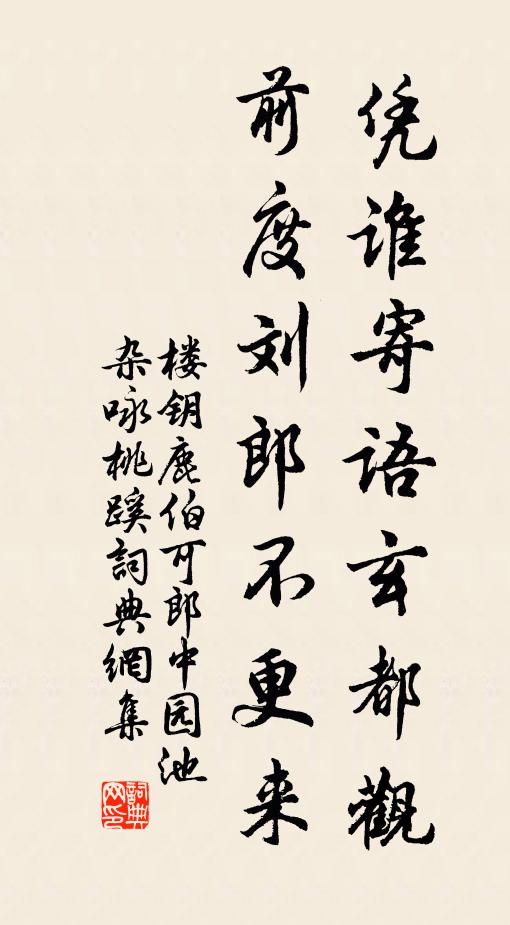 凭谁寄语玄都觀
前度刘郎不更来
楼钥鹿伯可郎中园池
杂咏桃蹊詞典網集
詞典
网印